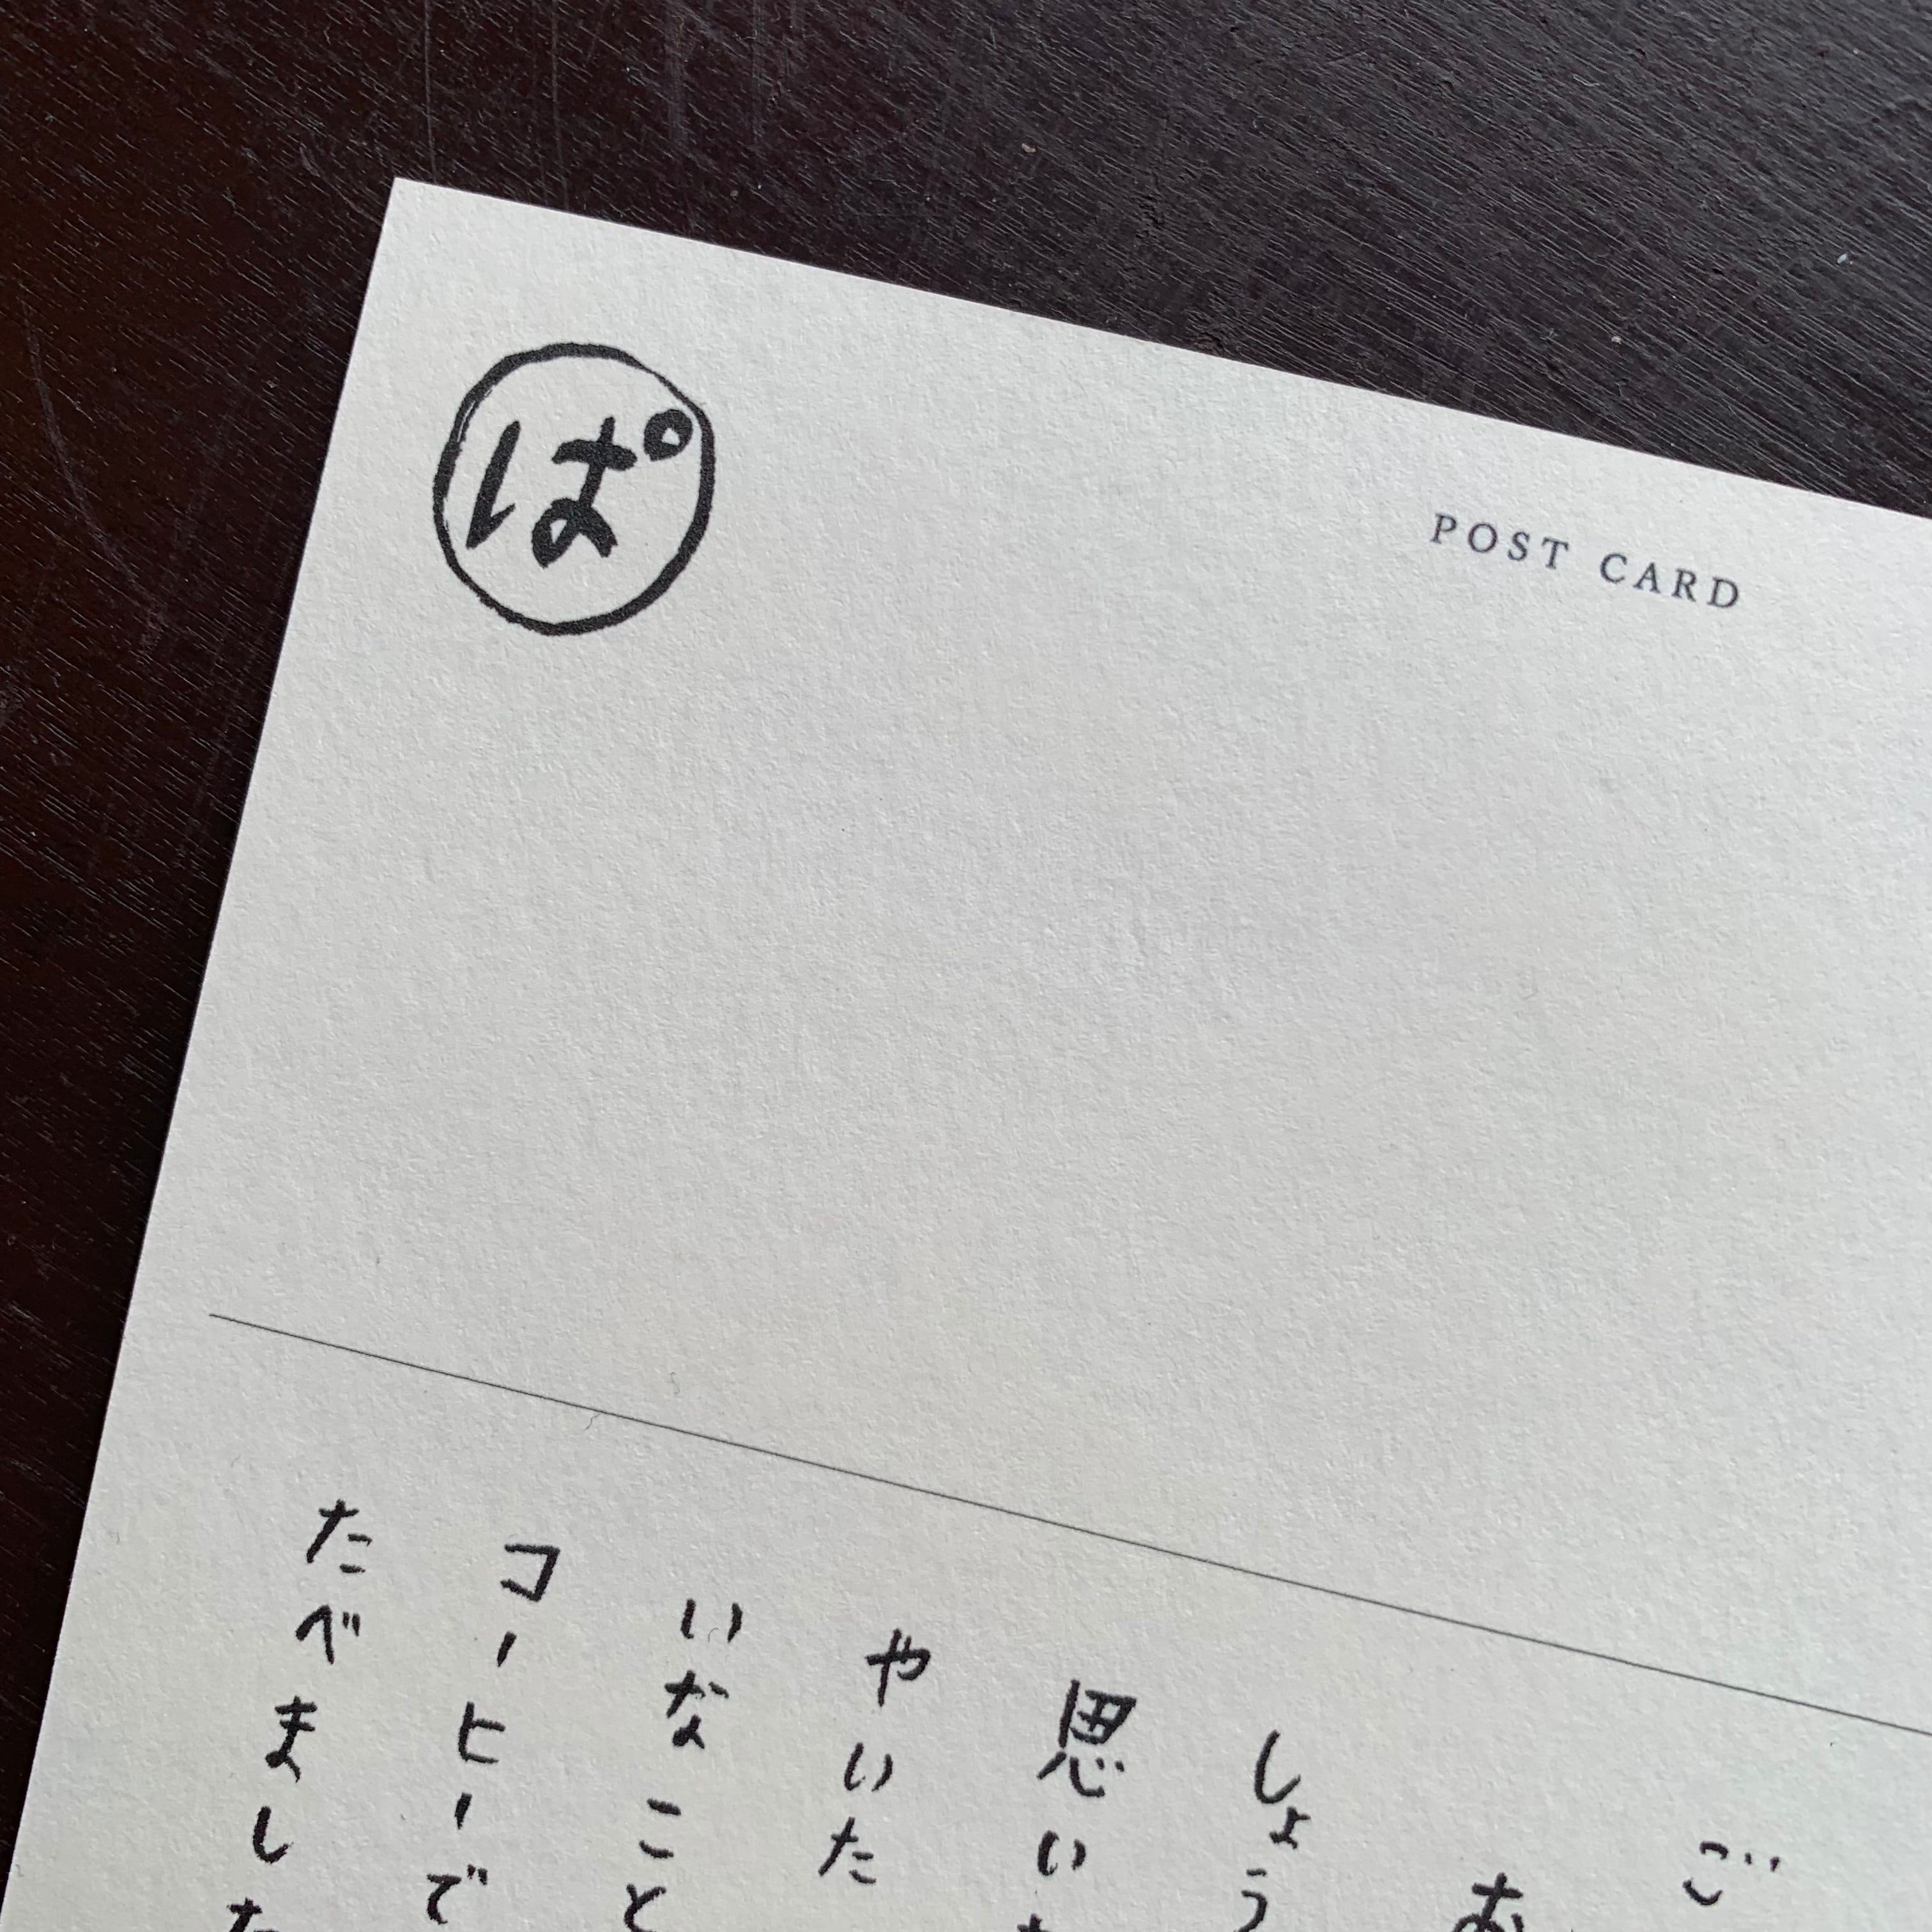 ぱ
POST CARD
ご
お
しょう
思い
やいた
いなこと
コーヒーで
たべました